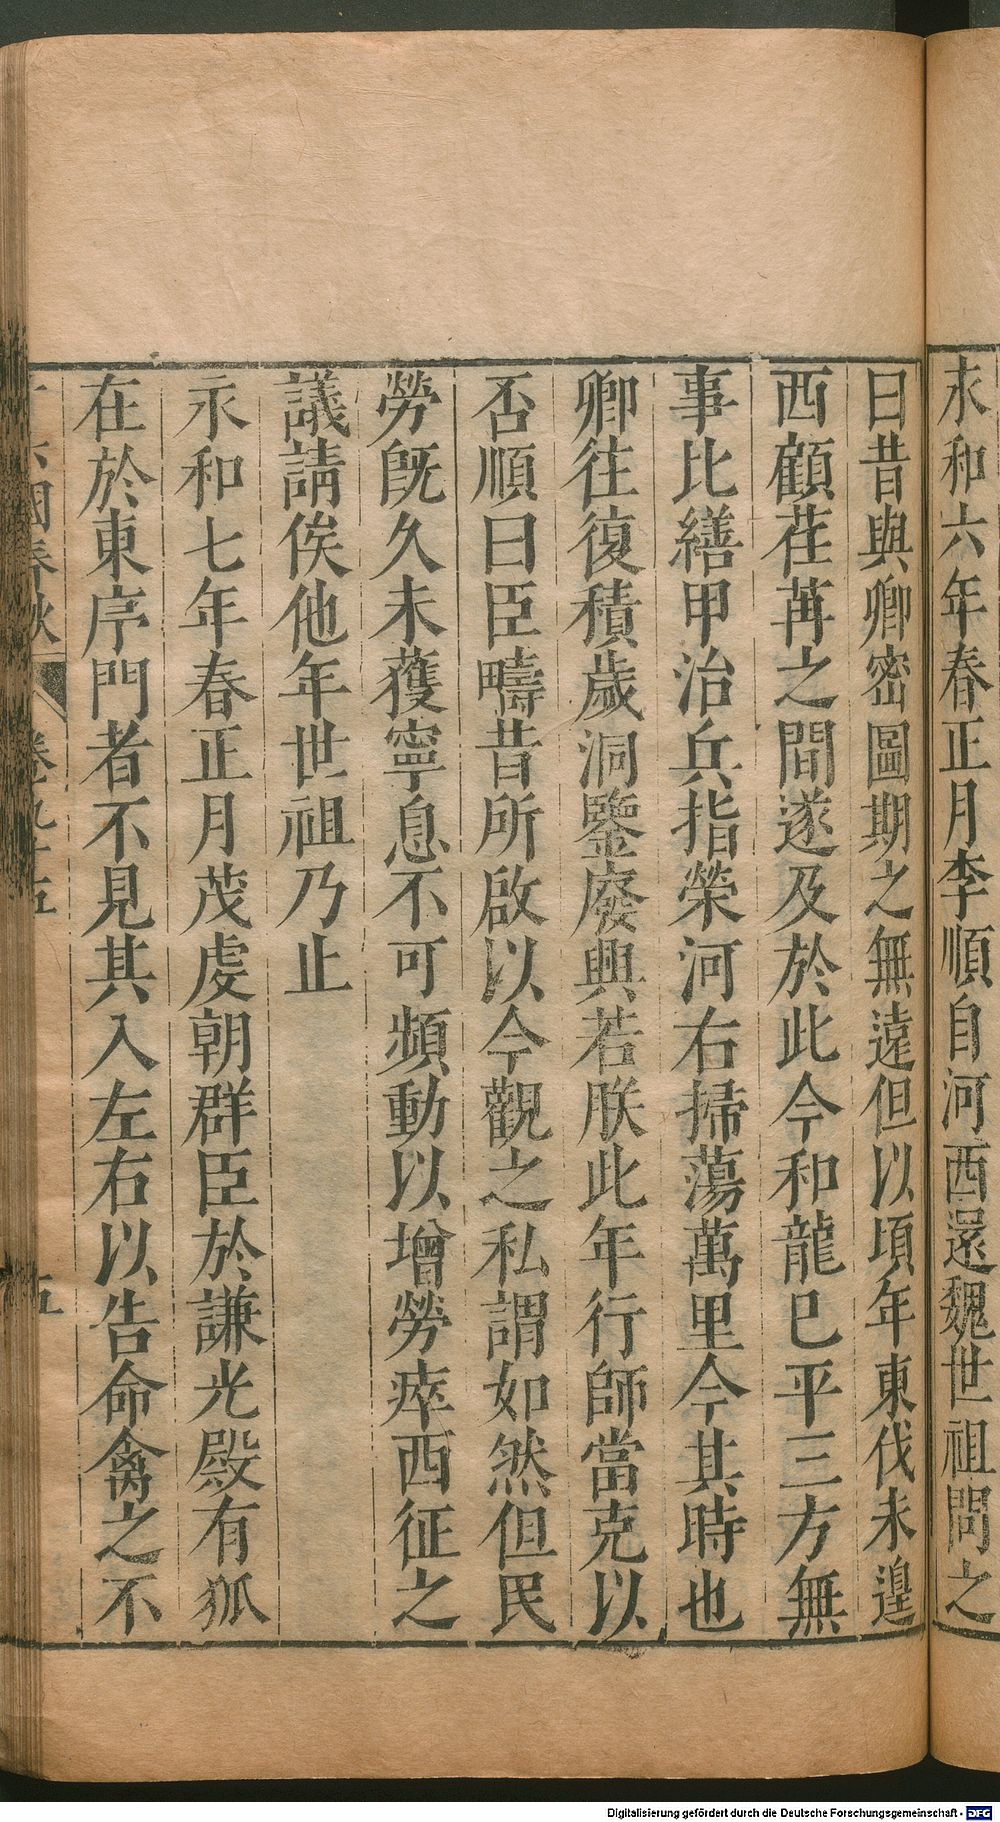 永和六年春正月李順自河西還魏世祖問之
曰昔與卿密圖期之無遠但以頃年東伐未遑
西顧荏苒之間遂及於此今和龍已平三方無
事比繕甲治兵指榮河右掃蕩萬里今其時也
卿往復積歲洞鑒廢興若朕此年行師當克以
否順曰臣疇昔所啟以今觀之私謂如然但民
勞旣久未獲寧息不可頻動以增勞瘁西征之
議請俟他年世祖乃止
永和七年春正月茂虔朝群臣於謙光殿有狐
在於東序門者不見其入左右以告命禽之不
六國春秋 卷九十五 五
Digitalisierung gefördert durch die Deutsche Forschungsgemeinschaft - DFG